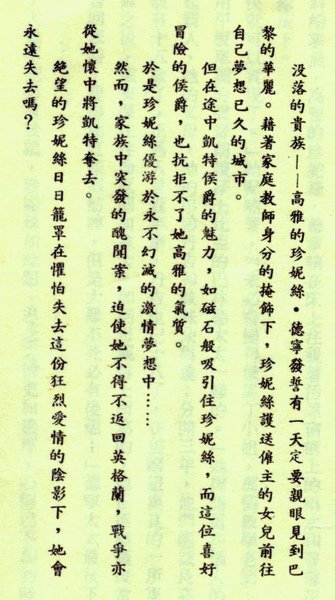 沒落的貴族——高雅的珍妮絲•德寧發誓有一天定要親眼見到巴
黎的華麗。藉著家庭教師身分的掩飾下，珍妮絲護送僱主的女兒前往
自己夢想已久的城市。
但在途中凱特侯爵的魅力，如磁石般吸引住珍妮絲，而這位喜好
冒險的侯爵，也抗拒不了她高雅的氣質。
於是珍妮絲優游於永不幻滅的激情夢想中……
然而，家族中突發的醜聞案，迫使她不得不返回英格蘭，戰爭亦
從她懷中將凱特奪去。
絕望的珍妮絲日日籠罩在懼怕失去這份狂烈愛情的陰影下，她會
永遠失去嗎？